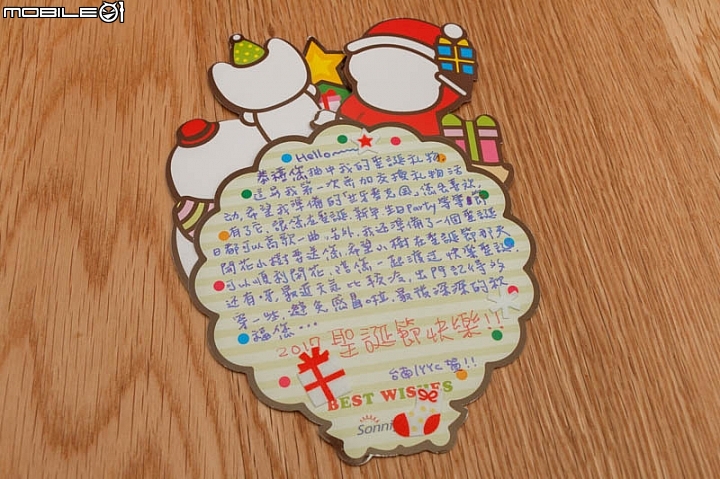 MOBILE01
Hello~~~
恭禧您抽中我的聖誕禮物
這是我第一次參加交換禮物活
動,希望我準備的「音樂麥克風」您會喜歡,
有了它,讓您在聖誕、新年、生日Party等等節
日都可以高歌一曲,另外,我還準備了一個聖誕
開花小樹要送你,希望小樹在聖誕節那天
可以順利開花,陪你一起渡過快樂聖誕.
還有呀,最近天氣比較冷,出門記得多
穿一些,避免感冒啦,最後深深的祝
福您...
2017 聖誕節快樂!!
BEST WISHES
Sonni